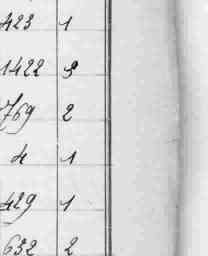 423 1
1422 3
769 2
4 1
429 1
632 2